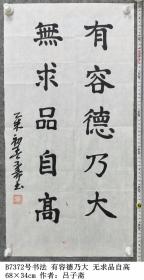 有容德乃大
無求品自高
B7372号书法 有容德乃大 无求品自高
68×34cm 作者：吕子斋